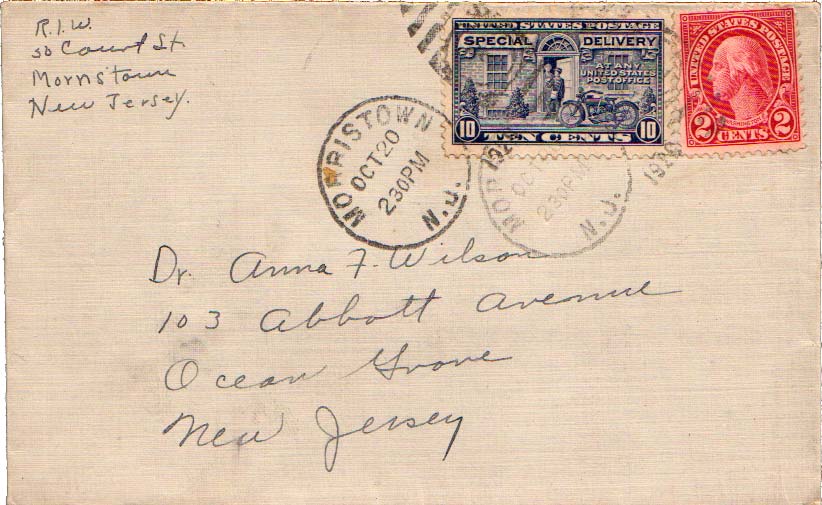 R.I.W.
50 Court St.
Morristown
New Jersey.
UNITED STATES POSTAGE
SPECIAL DELIVERY
AT ANY
UNITED STATES
POST OFFICE
10 TEN CENTS 10
UNITED STATES POSTAGE
WASHINGTON
2 CENTS 2
MORRISTOWN
OCT 20
230 PM
N.J.
OCT
230PM
N.J.
Dr. Anna F. Wilson
103 Abbott Avenue
Ocean Grove
New Jersey